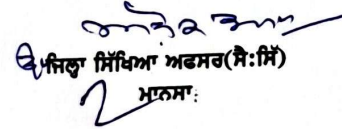 ਉਪ ਜਿਲ੍ਹਾ ਸਿੱਖਿਆ ਅਫਸਰ(ਸੈ:ਸਿੱ)
ਮਾਨਸਾ: